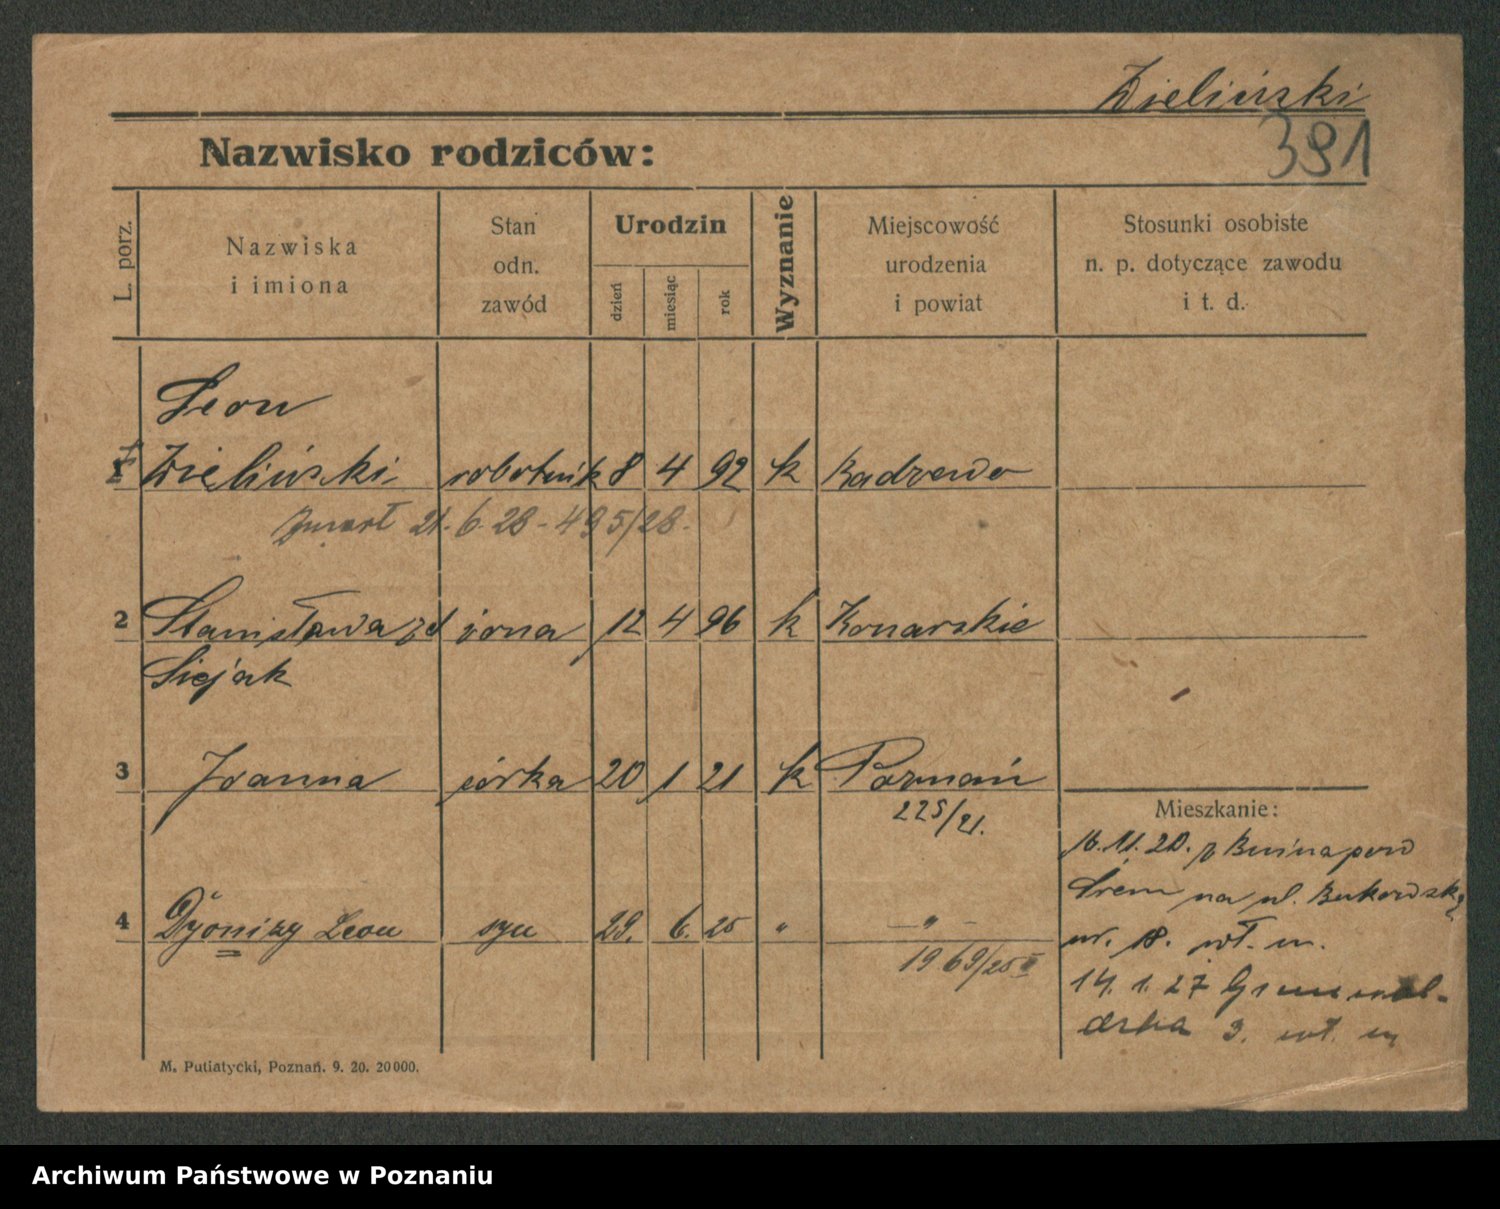 Zieliński
391
Nazwisko rodziców:
L. porz.
Nazwiska
i imiona
Stan
odn.
zawód
Urodzin
dzień
miesiąc
rok
Wyznanie
Miejscowość
urodzenia
i powiat
Stosunki osobiste
n. p. dotyczące zawodu
i t. d.
Leon
1 Zieliński robotnik 8 4 92 k Radzewo
Zmarł 21.6.28 - 495/28.
2 Stanisława żona 12 4 96 k Konarskie
Siejak
3 Joanna córka 20 1 21 k Poznań
225/21.
Mieszkanie:
16.11.20. z Bnina pow
Śrem na ul. Bukowską
4 Dyonizy Leon syn 29. 6. 25 " - " -
nr. 18. wł. m.
1969/25 II
14.1.27 Grunwal-
dzka 3. wł. m
M. Putiatycki, Poznań. 9. 20. 20000.
Archiwum Państwowe w Poznaniu